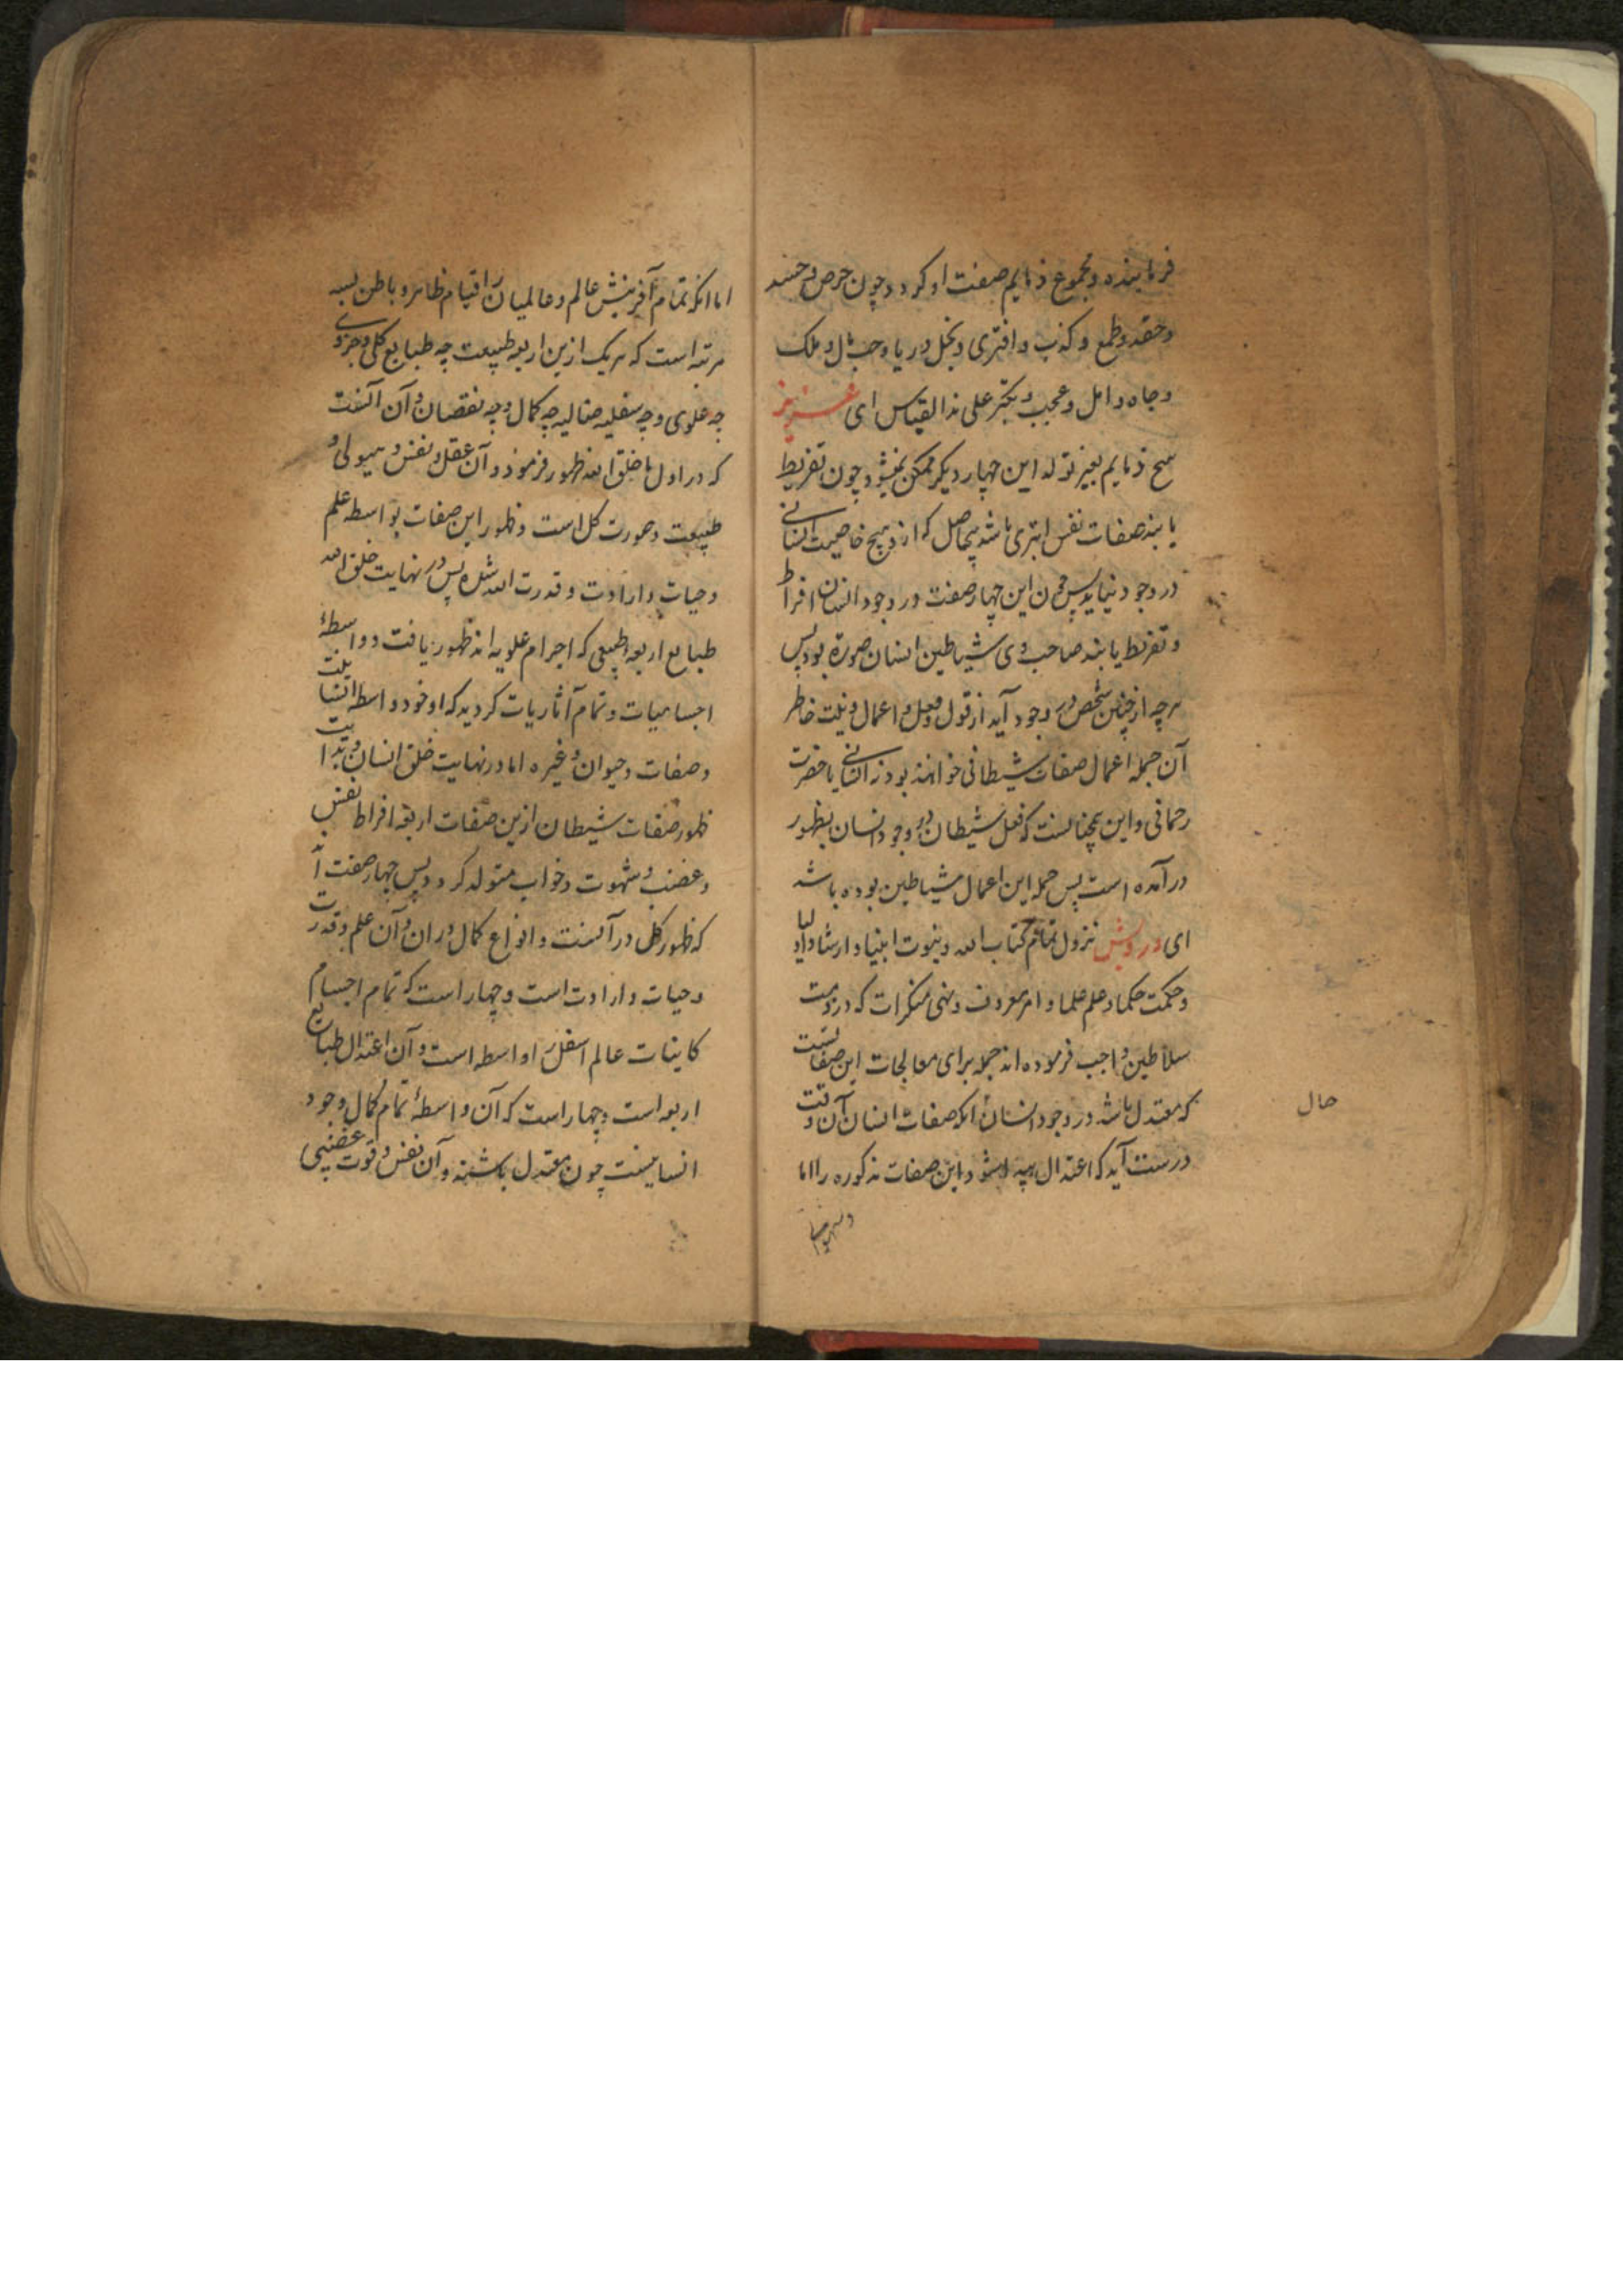 فرمایند و مجموع ذمایم صفت او کردد چون حرص و حسد
و حقد و طمع و کذب و افتری و بخل و ریا و حب مال و ملک
و جاه و امل و عجب و تکبر علی هذا القیاس ای عزیز
هیچ ذمایم بغیر تولد این چهار دیکر ممکن نمیشود چون تفریط
یابند صفات نفس ابتری باشد بیحاصل که ازو هیچ خاصیت انسانی
در وجود نیاید پس چون این چهار صفت در وجود انسان افراط
و تفریط یابند صاحب وی شیاطین انسان صورة بود پس
هرچه از چنین شخص در وجود آید از قول و فعل و اعمال و نیت خاطر
آن جمله اعمال صفات شیطانی خوانند بود نه انسانی یا حضرت
رحمانی و این همچنانست که فعل شیطان در وجود انسان بظهور
در آمده است پس جمله این اعمال شیاطین بوده باشد
ای درویش نزول تمام کتاب الله و نبوت انبیا و ارشاد اولیا
و حکمت حکما و علم علما و امر معروف و نهی منکرات که در ذمت
سلاطین واجب فرموده اند جمله برای معالجات این صفاتست
که معتدل باشد در وجود انسان انکه صفات انسان آن وقت
درست آید که اعتدال پیدا شود این صفات مذکوره را اما
حال
اما انکه تمام آفرینش عالم و عالمیان را قیام ظاهر و باطن بسه
مرتبه است که هر یک ازین اربعه طبیعت چه طبایع کلی و جزوی
چه علوی و چه سفلیه چه کمال و چه نقصان و آن آنست
که در اول ما خلق الله ظهور فرمود و آن عقل و نفس و هیولی و
طبیعت و صورت کل است و ظهور این صفات بواسطه علم
و حیات و ارادت و قدرت الله شده پس در نهایت خلق الله
طبایع اربعه طبیعی که اجرام علویه اند ظهور یافت و واسطهٔ
اجسامیات و تمام آثاریات کردید که او خود واسطه انسانیت
و صفات و حیوان و غیره اما در نهایت خلق انسان
ظهور صفات شیطان ازین صفات اربعه افراط نفس
و غضب و شهوت و خواب متولد کردد پس چهار صفت
که ظهور کل در آنست و انواع کمال در ان و آن علم و قدرت
و حیات و ارادت است و چهار است که تمام اجسام
کاینات عالم اسفل را واسطه است و آن اعتدال طبایع
اربعه است و چهار است که آن واسطهٔ تمام کمال وجود
انسانیست چون معتدل باشند و آن نفس و قوت غضبی